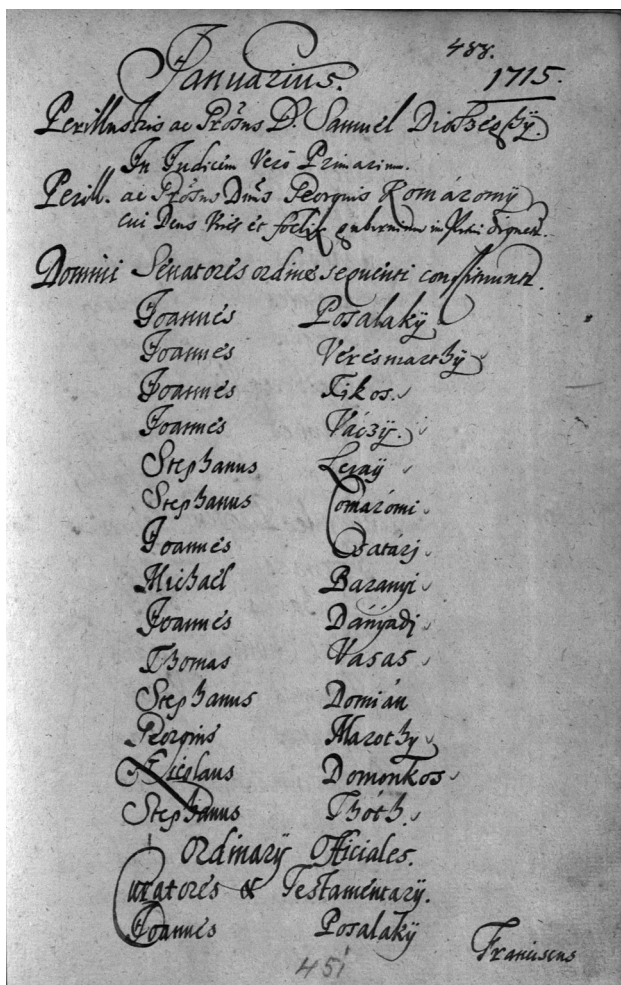 488.
Januarius. 1715.
Perillustris ac Prosus D. Samuel Dioszeghÿ.
In Judicem Verò Primarium.
Perill. ac Prosus Dnus Georgius Komáromÿ
cui Deus et foelix gubernium
Domini Senatores ordine sequenti constituunt.
Joannes Posalakÿ
Joannes Veresmarthÿ
Joannes Fikos.
Joannes Váczÿ.
Stephanus
Stephanus Comáromi
Joannes Csatárj
Michaël Baranyi
Joannes Dányadj
Thomas Vasas
Stephanus Domián
Georgius Marothy
Nicolaus Domonkos
Stephanus Thóth.
Ordinarÿ Officiales.
Curatores & Testamentarÿ.
Joannes Posalakÿ
Franciscus
451